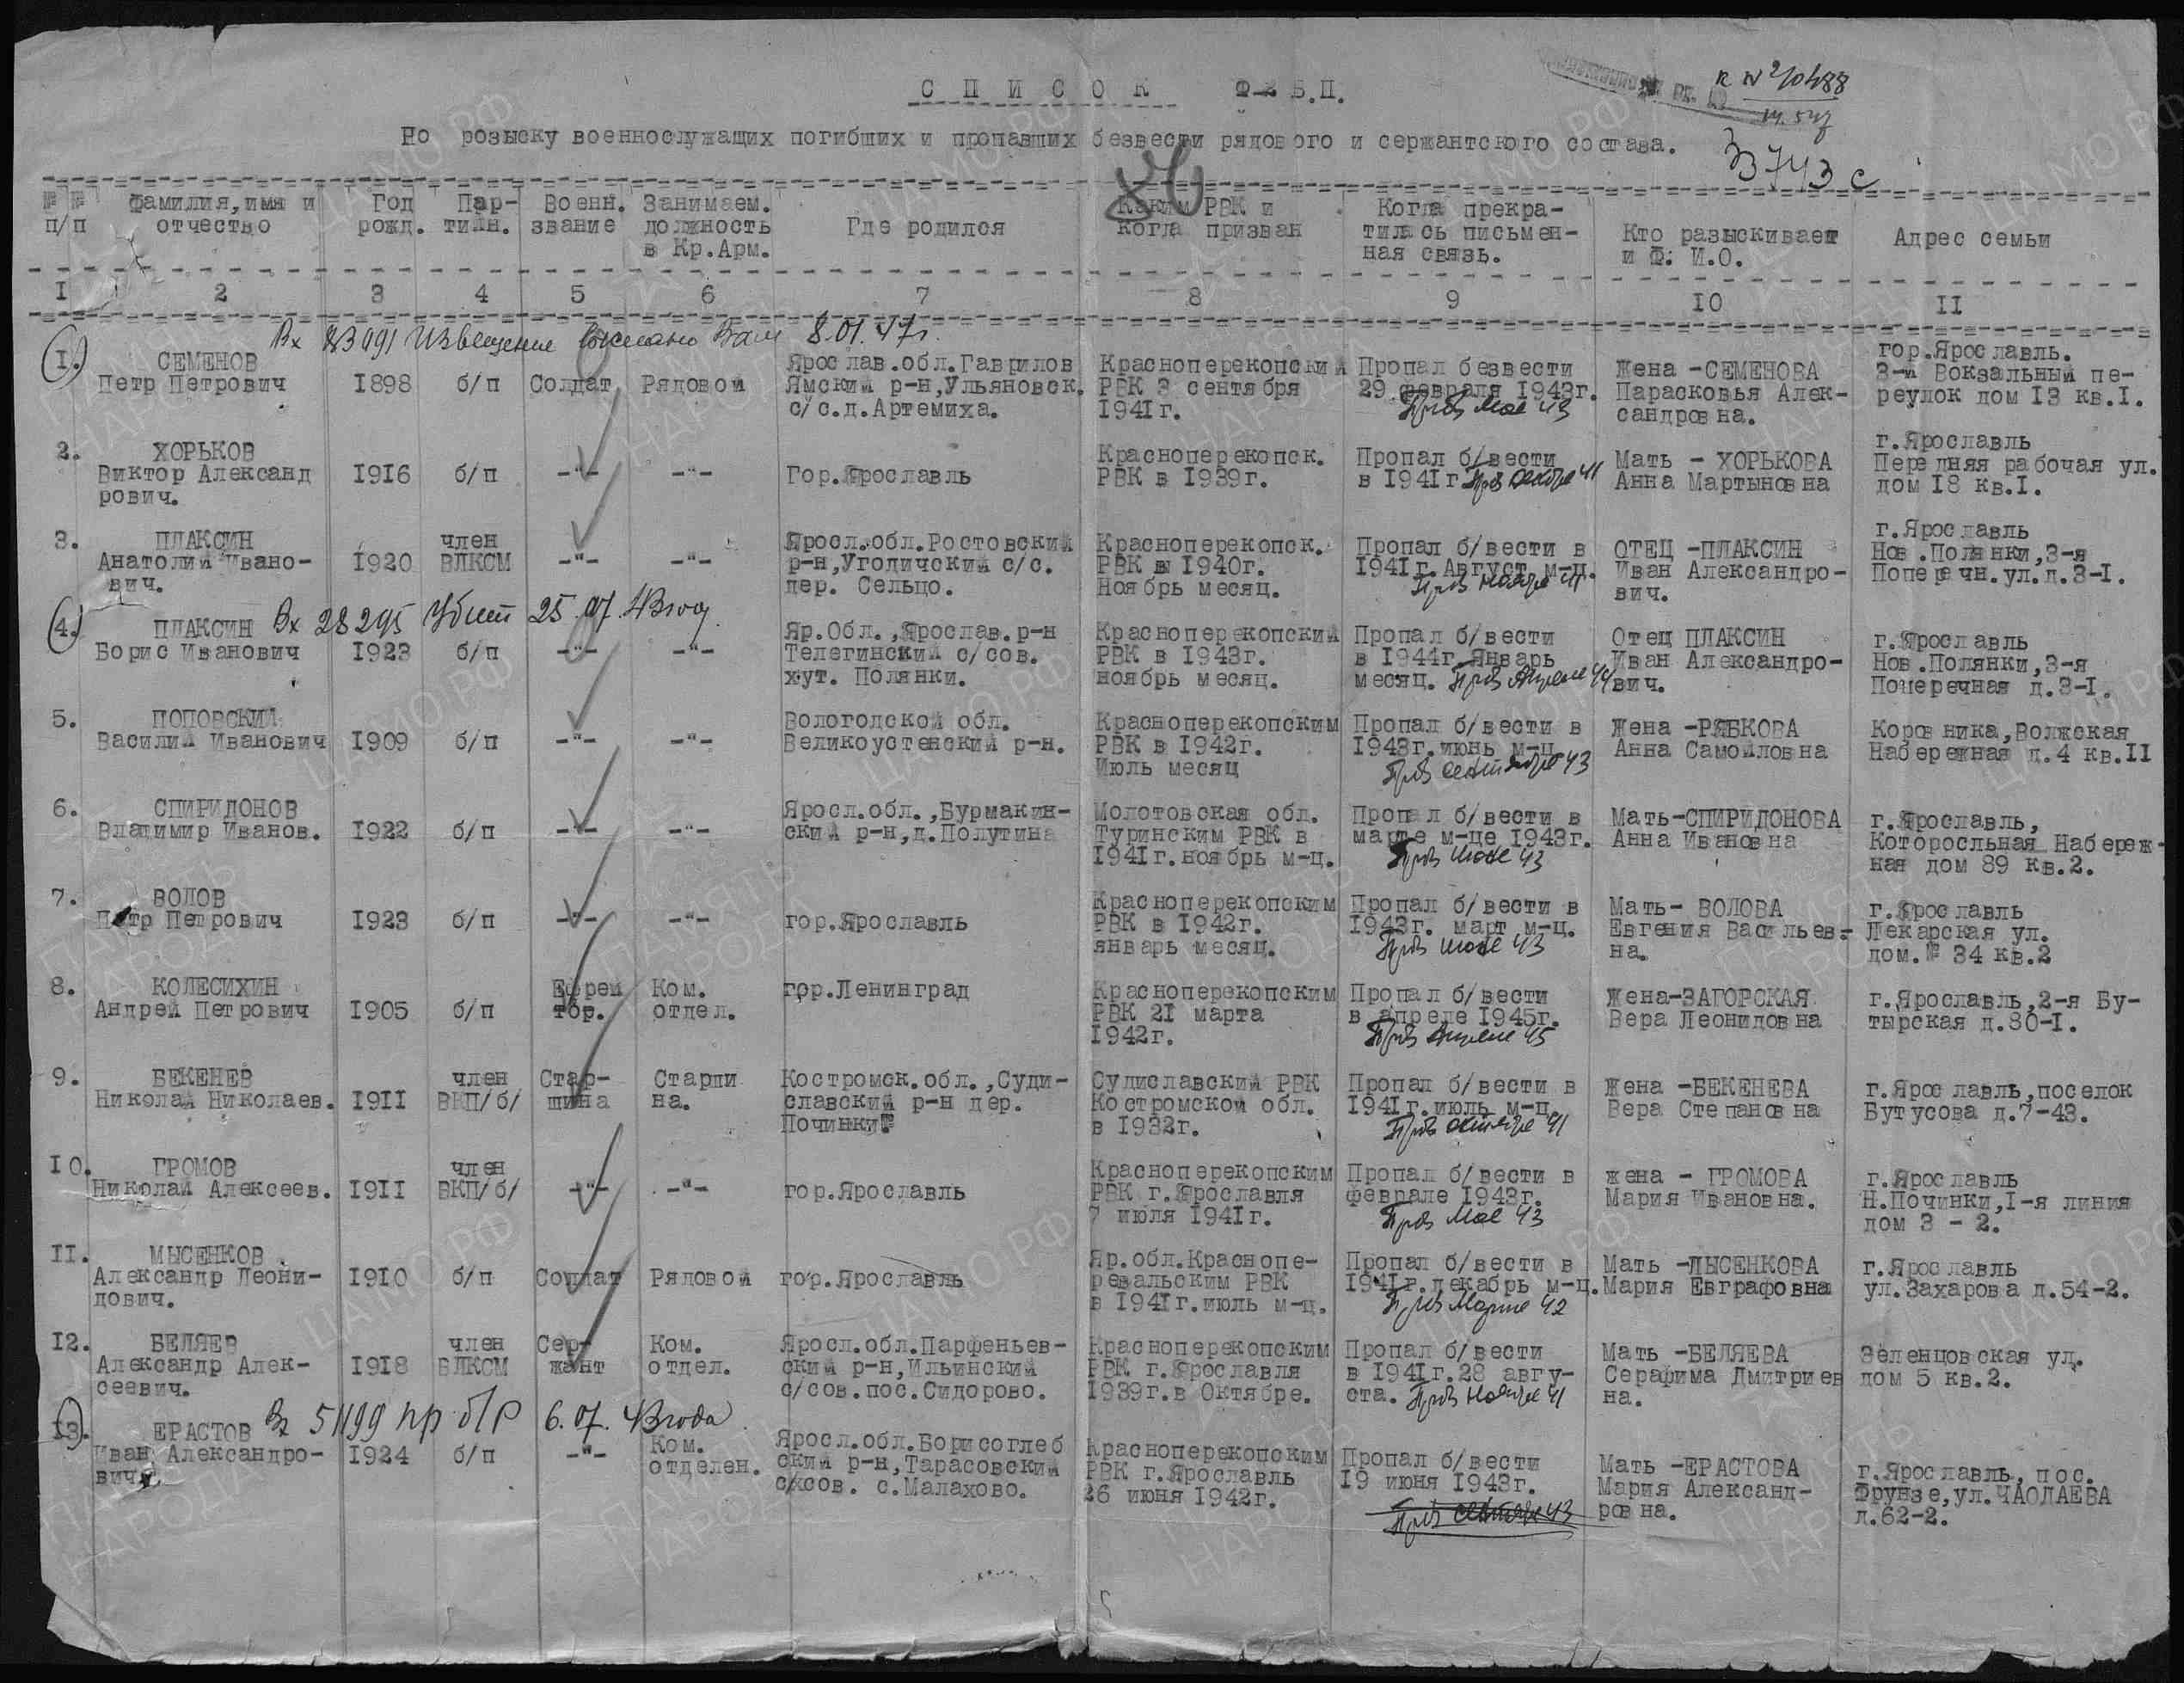 С П И С О К Ф-2 Б.П.
к №
3743 с
По розыску военнослужащих погибших и пропавших безвести рядового и сержантского состава.
№№ п/п
Фамилия, имя и отчество
Год рожд.
Пар-тийн.
Военн. звание
Занимаем. должность в Кр.Арм.
Где родился
Каким РВК и когда призван
Когда прекра-тилась письмен-ная связь.
Кто разыскивает и Ф. И.О.
Адрес семьи
I 2 3 4 5 6 7 8 9 IO II
Вх 83091 Извещение выслано Вам 8.01.47г.
I. СЕМЕНОВ
Петр Петрович
I898
б/п
Солдат
Рядовой
Ярослав.обл.Гаврилов
Ямский р-н,Ульяновск.
с/с.д.Артемиха.
Красноперекопский
РВК 3 сентября
I94Iг.
Пропал безвести
29 февраля I943г.
Проп Мае 43
Жена -СЕМЕНОВА
Парасковья Алек-
сандровна.
гор.Ярославль.
3-й Вокзальный пе-
реулок дом I3 кв.I.
2. ХОРЬКОВ
Виктор Александ
рович.
I9I6
б/п
-"-
-"-
Гор.Ярославль
Красноперекопск.
РВК в I939г.
Пропал б/вести
в I94Iг
41
Мать - ХОРЬКОВА
Анна Мартыновна
г.Ярославль
Передняя рабочая ул.
дом I8 кв.I.
3. ПЛАКСИН
Анатолий Ивано-
вич.
I920
член
ВЛКСМ
-"-
-"-
Яросл.обл.Ростовский
р-н,Угодичский с/с.
дер. Сельцо.
Красноперекопск.
РВК в I940г.
Ноябрь месяц.
Пропал б/вести в
I94Iг.Август м-ц.
Проп Ноябре 41
ОТЕЦ -ПЛАКСИН
Иван Александро-
вич.
г.Ярославль
Нов.Полянки,3-я
Попереч н.ул.д.3-I.
Вх 28295 Убит 25.07.43год
4. ПЛАКСИН
Борис Иванович
I923
б/п
-"-
-"-
Яр.Обл.,Ярослав.р-н
Телегинский с/сов.
хут. Полянки.
Красноперекопский
РВК в I943г.
ноябрь месяц.
Пропал б/вести
в I944г.Январь
месяц. Проп Апреле 44
Отец ПЛАКСИН
Иван Александро-
вич.
г.Ярославль
Нов.Полянки,3-я
Поперечная д.3-I.
5. ПОПОВСКИЙ
Василий Иванович
I909
б/п
-"-
-"-
Вологодской обл.
Великоустенский р-н.
Красноперекопским
РВК в I942г.
Июль месяц
Пропал б/вести в
I943г.июнь м-ц.
Проп сентябре 43
Жена -РЯБКОВА
Анна Самойловна
Коровника,Волжская
Набережная д.4 кв.II
6. СПИРИДОНОВ
Владимир Иванов.
I922
б/п
-"-
-"-
Яросл.обл.,Бурмакин-
ский р-н,д.Полутина
Молотовская обл.
Туринским РВК в
I94Iг.ноябрь м-ц.
Пропал б/вести в
марте м-це I943г.
Проп Июне 43
Мать-СПИРИДОНОВА
Анна Ивановна
г.Ярославль,
Которосльная Набереж-
ная дом 89 кв.2.
7. ВОЛОВ
Петр Петрович
I923
б/п
-"-
-"-
гор.Ярославль
Красноперекопским
РВК в I942г.
январь месяц.
Пропал б/вести в
I943г. март м-ц.
Проп Июне 43
Мать- ВОЛОВА
Евгения Васильев-
на.
г.Ярославль
Пекарская ул.
дом.№ 34 кв.2
8. КОЛЕСИХИН
Андрей Петрович
I905
б/п
Ефрей
тор.
Ком.
отдел.
гор.Ленинград
Красноперекопским
РВК 2I марта
I942г.
Пропал б/вести
в апреле I945г.
Проп Апреле 45
Жена-ЗАГОРСКАЯ
Вера Леонидовна
г.Ярославль,2-я Бу-
тырская д.30-I.
9. БЕКЕНЕВ
Николай Николаев.
I9II
член
ВКП/б/
Стар-
шина
Старши
на.
Костромск.обл.,Суди-
славский р-н дер.
Починки
Судиславский РВК
Костромской обл.
в I932г.
Пропал б/вести в
I94Iг.июль м-ц.
Проп октябре 41
Жена -БЕКЕНЕВА
Вера Степановна
г.Ярославль,поселок
Бутусова д.7-43.
IO. ГРОМОВ
Николай Алексеев.
I9II
член
ВКП/б/
-"-
-"-
гор.Ярославль
Красноперекопским
РВК г.Ярославля
7 июля I94Iг.
Пропал б/вести в
феврале I943г.
Проп Мае 43
жена - ГРОМОВА
Мария Ивановна.
г.Ярославль
Н.Починки,I-я линия
дом 3 - 2.
II. МЫСЕНКОВ
Александр Леони-
дович.
I9IO
б/п
Солдат
Рядовой
гор.Ярославль
Яр.обл.Краснопе-
ревальским РВК
в I94Iг.июль м-ц.
Пропал б/вести в
I94Iг.декабрь м-ц.
Проп Марте 42
Мать -ЛЫСЕНКОВА
Мария Евграфовна
г.Ярославль
ул.Захарова д.54-2.
I2. БЕЛЯЕВ
Александр Алек-
сеевич.
I9I8
член
ВЛКСМ
Сер-
жант
Ком.
отдел.
Яросл.обл.Парфеньев-
ский р-н,Ильинский
с/сов.пос.Сидорово.
Красноперекопским
РВК г.Ярославля
I939г.в Октябре.
Пропал б/вести
в I94Iг.28 авгу-
ста. Проп Ноябре 41
Мать -БЕЛЯЕВА
Серафима Дмитриев
на.
Зеленцовская ул.
дом 5 кв.2.
Вх 51199 пр б/р 6.07.43года
I3. ЕРАСТОВ
Иван Александро-
вич
I924
б/п
-"-
Ком.
отделен.
Яросл.обл.Борисоглеб
ский р-н,Тарасовский
с/сов. с.Малахово.
Красноперекопским
РВК г.Ярославль
26 июня I942г.
Пропал б/вести
I9 июня I943г.
Проп сентябре 43
Мать -ЕРАСТОВА
Мария Александ-
ровна.
г.Ярославль, пос.
Фрунзе,ул.ЧАОЛАЕВА
д.62-2.